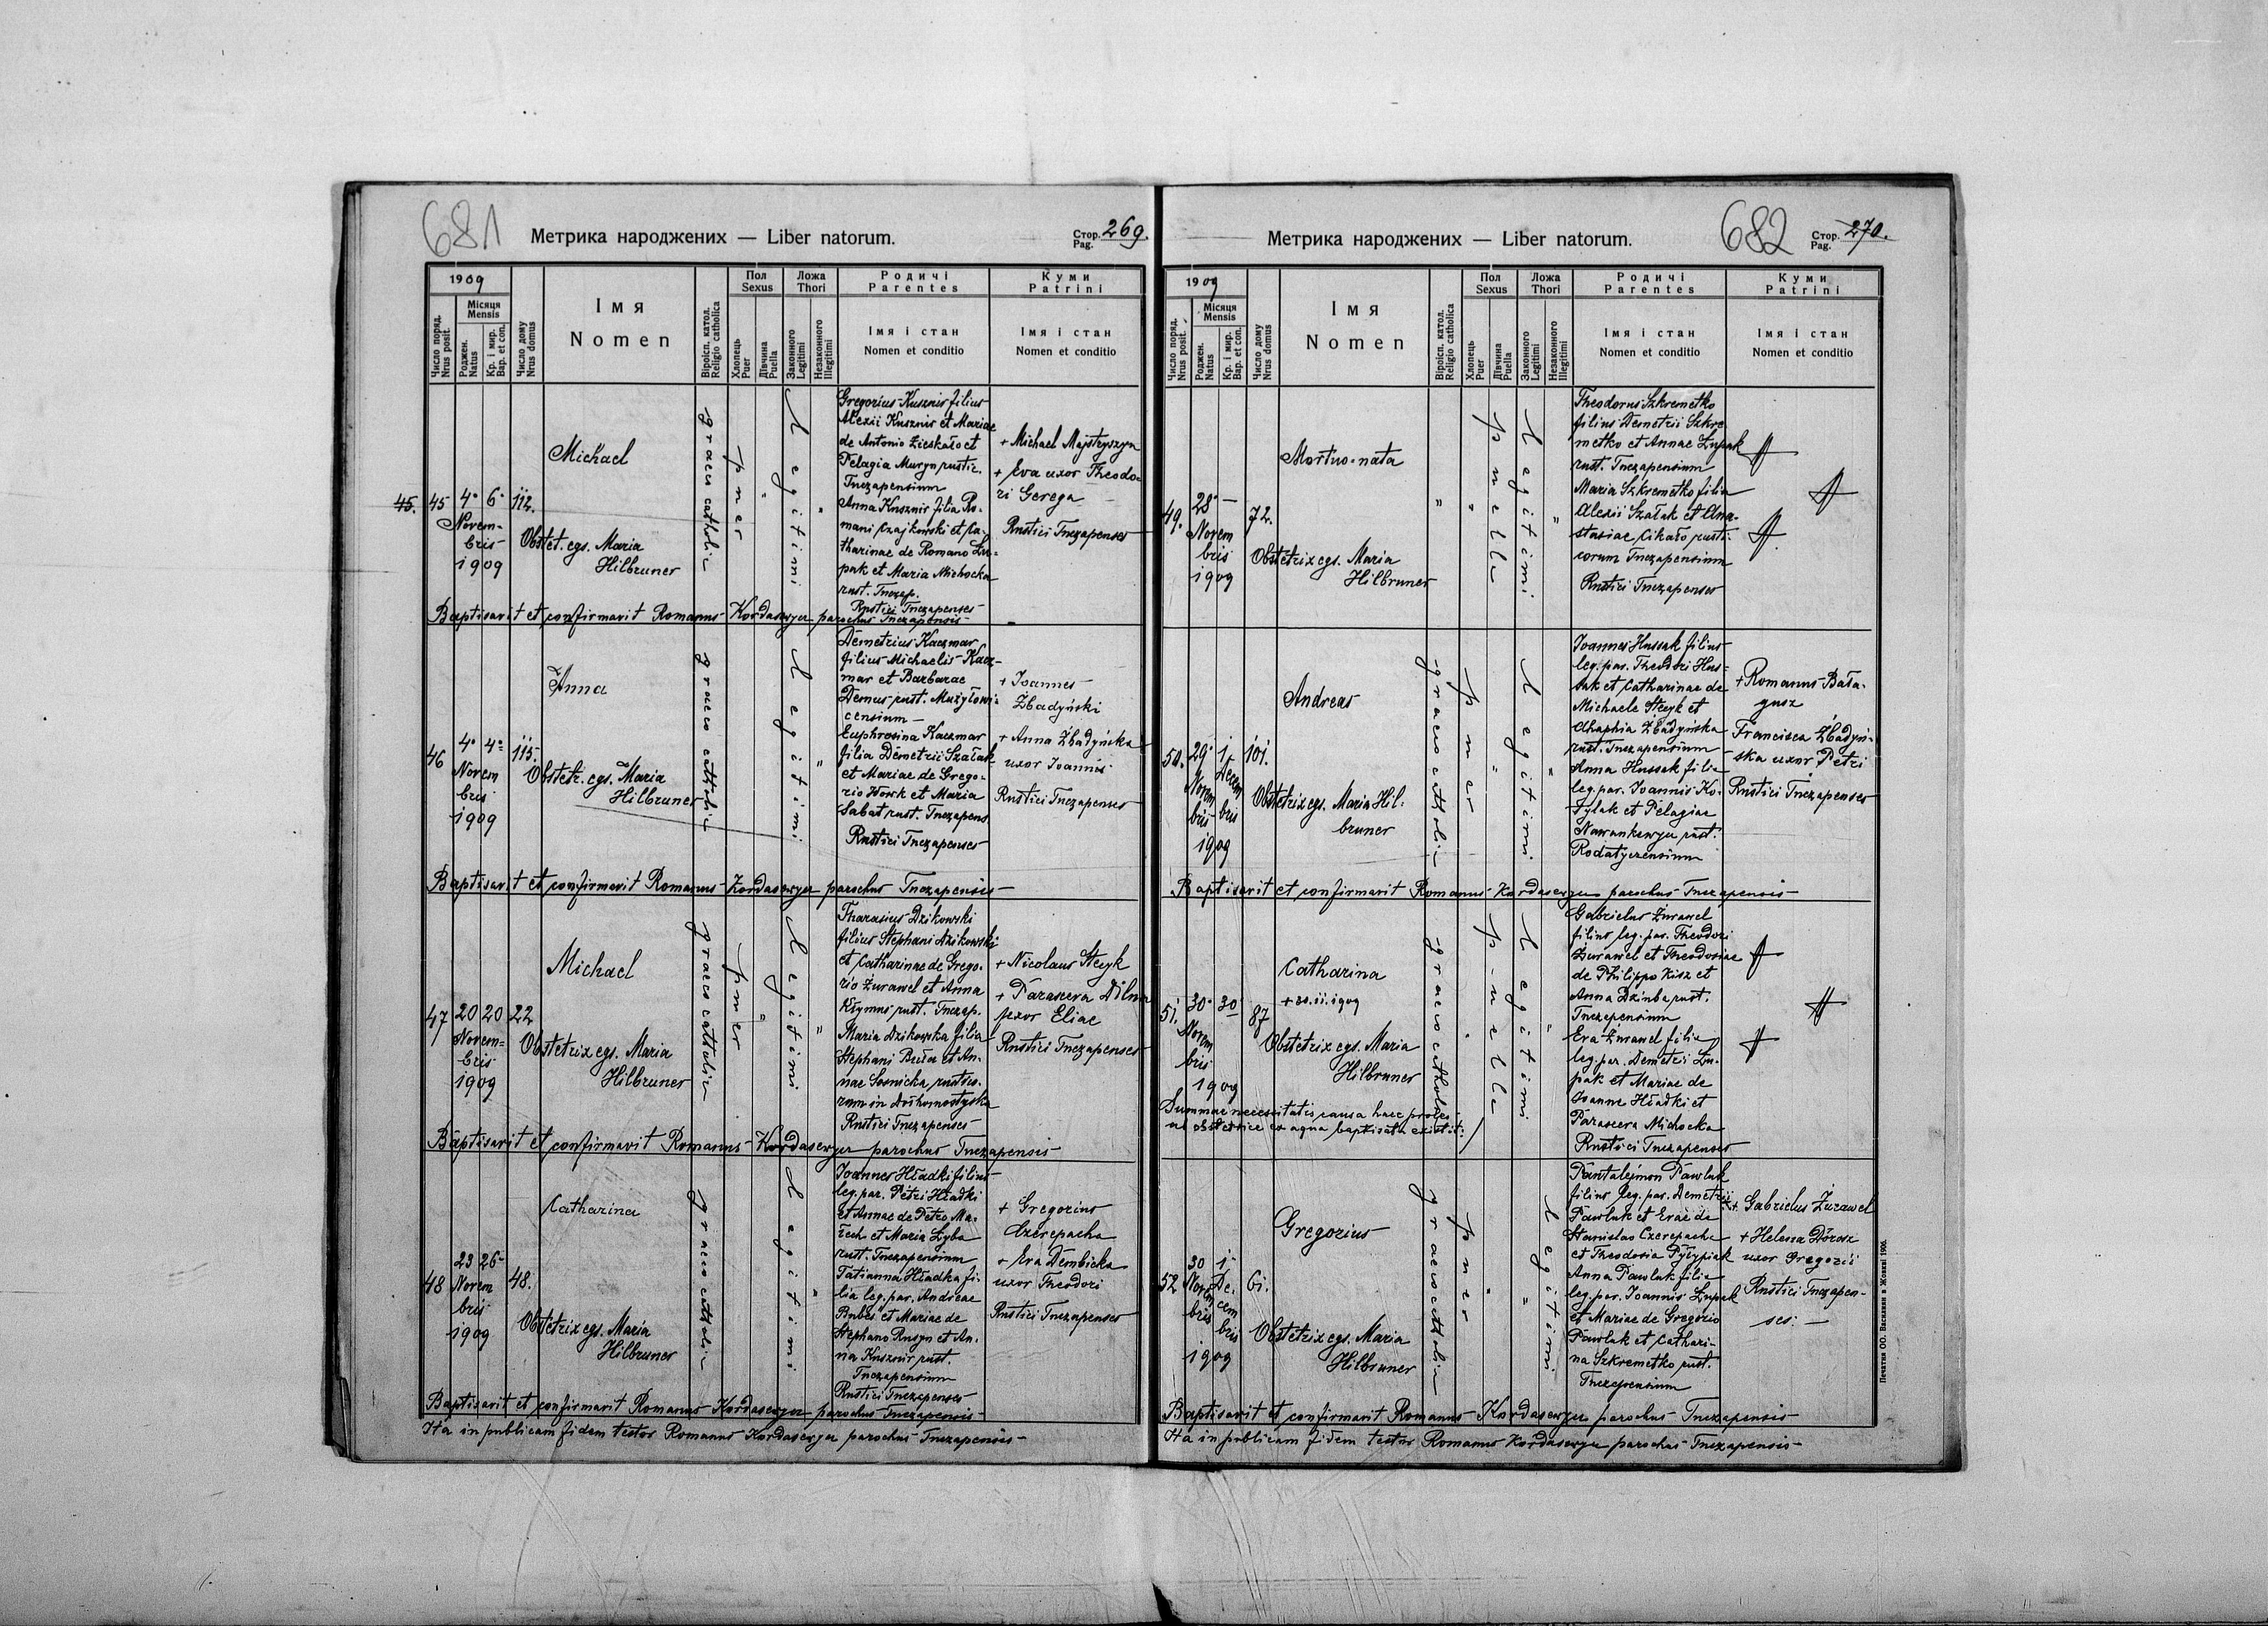 681
Метрика народжених — Liber natorum.
Стор. 269.
Pag.
1909
Число поряд.
Nrus posit.
Місяця
Mensis
Роджен.
Natus
Кр. і мир.
Bap. et con.
Число дому
Nrus domus
Імя
Nomen
Віроісп. катол.
Religio catholica
Пол
Sexus
Хлопець
Puer
Дівчина
Puella
Ложа
Thori
Законного
Legitimi
Незаконного
Illegitimi
Родичі
Parentes
Імя і стан
Nomen et conditio
Куми
Patrini
Імя і стан
Nomen et conditio
45.
45 4. 6. 112.
Novem-
bris
1909
Michael
Obstet. egs. Maria
Hilbruner
graeco catholic
puer "
Legitimi "
Gregorius Kusznir filius
Alexii Kusznir et Mariae
de Antonio Zieskało et
Pelagia Muryn rustic.
Tnezapensium
Anna Kusznir filia Ro-
mani Czajkowski et Ca-
tharinae de Romano Łu-
pak et Maria Michocka
rust. Tnezap.
Rustici Tnezapenses
+ Michael Majstryszyn
+ Eva uxor Theodo-
ri Gerega
Rustici Tnezapenses
Baptisavit et confirmavit Romanus Kordasewycz parochus Tnezapensis
46 4. 4. 115.
Novem
bris
1909
Anna
Obstetr. egs. Maria
Hilbruner
graeco catholic
Legitimi "
Demetrius Kaczmar
filius Michaelis Kacz-
mar et Barbarae
Demus rust. Mużyłowi-
censium
Euphrosina Kaczmar
filia Demetrii Szałak
et Mariae de Grego-
rio Wowk et Maria
Sabat rust. Tnezapens
Rustici Tnezapenses
+ Joannes
Zbadyński
+ Anna Zbadyńska
uxor Joannis
Rustici Tnezapenses
Baptisavit et confirmavit Romanus Kordasewycz parochus Tnezapensis
47 20 20 22
Novem-
bris
1909
Michael
Obstetrix egs. Maria
Hilbruner
graeco catholic
puer "
Legitimi "
Tharasius Dzikowski
filius Stephani Dzikowski
et Catharinae de Grego-
rio Żurawel et Anna
Kłymus rust. Tnezap.
Maria Dzikowska filia
Stephani et An-
nae Sosnicka rustico-
rum in
Rustici Tnezapenses
+ Nicolaus Stecyk
+ Parascera
uxor Eliae
Rustici Tnezapenses
Baptisavit et confirmavit Romanus Kordasewycz parochus Tnezapensis
48 23 26 48.
Novem
bris
1909
Catharina
Obstetrix egs. Maria
Hilbruner
graeco catholic
Legitimi "
Joannes Hładki filius
leg. par. Petri Hładki
et Annae de Petro Ma-
et Maria Łyba
rust. Tnezapensium
Tatianna Hładka fi-
lia leg. par. Andreae
et Mariae de
Stephano Rusyn et An-
na Kusznir rust.
Tnezapensium
Rustici Tnezapenses
+ Gregorius
Czerepacha
+ Eva Dembicka
uxor Theodori
Rustici Tnezapenses
Baptisavit et confirmavit Romanus Kordasewycz parochus Tnezapensis
Ita in publicam fidem testor Romanus Kordasewycz parochus Tnezapensis
682
Метрика народжених — Liber natorum.
Стор. 270.
Pag.
1909
Число поряд.
Nrus posit.
Місяця
Mensis
Роджен.
Natus
Кр. і мир.
Bap. et con.
Число дому
Nrus domus
Імя
Nomen
Віроісп. катол.
Religio catholica
Пол
Sexus
Хлопець
Puer
Дівчина
Puella
Ложа
Thori
Законного
Legitimi
Незаконного
Illegitimi
Родичі
Parentes
Імя і стан
Nomen et conditio
Куми
Patrini
Імя і стан
Nomen et conditio
49. 28. — 72.
Novem
bris
1909
Mortuo-nata
Obstetrix egs. Maria
Hilbruner
" " puella
Legitimi "
Theodorus Szkremetko
filius Demetrii Szkre
metko et Annae Łupak
rust. Tnezapensium
Maria Szkremetko filia
Alexii Szałak et Ana-
stasiae Cikało rusti-
corum Tnezapensium
Rustici Tnezapenses
50. 29. 1. 101.
Novem bris Decem bris
1909
Andreas
Obstetrix egs. Maria Hil-
bruner
graeco catholic
puer "
Legitimi "
Joannes Hussak filius
leg. par. Theodori Hus-
sak et Catharinae de
Michaele Stecyk et
Ahaphia Zbadyńska
rust. Tnezapensium
Anna Hussak filia
leg. par. Joannis Ko-
tylak et Pelagiae
Nawankewycz rust.
Rodatyczensium
+ Romanus Bała-
gusz
Francisca Zbadyń-
ska uxor Petri
Rustici Tnezapenses
Baptisavit et confirmavit Romanus Kordasewycz parochus Tnezapensis
51. 30. 30 87
Novem
bris
1909
Catharina
+ 30.11.1909
Obstetrix egs. Maria
Hilbruner
graeco catholic
" puella
Legitimi "
Summae necessitatis causa haec proles
ab obstetrice ex aqua baptisata existit.
Gabrielus Żurawel
filius leg. par. Theodori
Żurawel et Theodosiae
de Philippo Kisz et
Anna Dziuba rust.
Tnezapensium
Eva Żurawel filia
leg. par. Demetrii Łu-
pak et Mariae de
Joanne Hładki et
Parascera Michocka
Rustici Tnezapenses
52 30 1. 61.
Novem bris De- cem bris
1909
Gregorius
Obstetrix egs. Maria
Hilbruner
graeco catholic
puer "
" Legitimi
Pantalejmon Pawluk
filius leg. par. Demetrii
Pawluk et Evae de
Stanislao Czerepacha
et Theodosia Pyłypiak
Anna Pawluk filia
leg. par. Joannis Łupak
et Mariae de Gregorio
Pawluk et Cathari-
na Szkremetko rust.
Tnezapensium
+ Gabrielus Żurawel
+ Helena Dorosz
uxor Gregorii
Rustici Tnezapen-
ses. —
Baptisavit et confirmavit Romanus Kordasewycz parochus Tnezapensis
Ita in publicam fidem testor Romanus Kordasewycz parochus Tnezapensis
Печатня ОО. Василиян в Жовкві 1906.